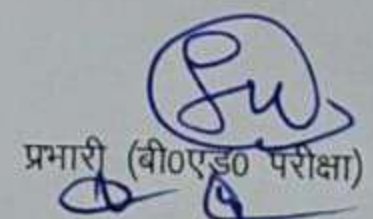 प्रभारी (बी०एड० परीक्षा)